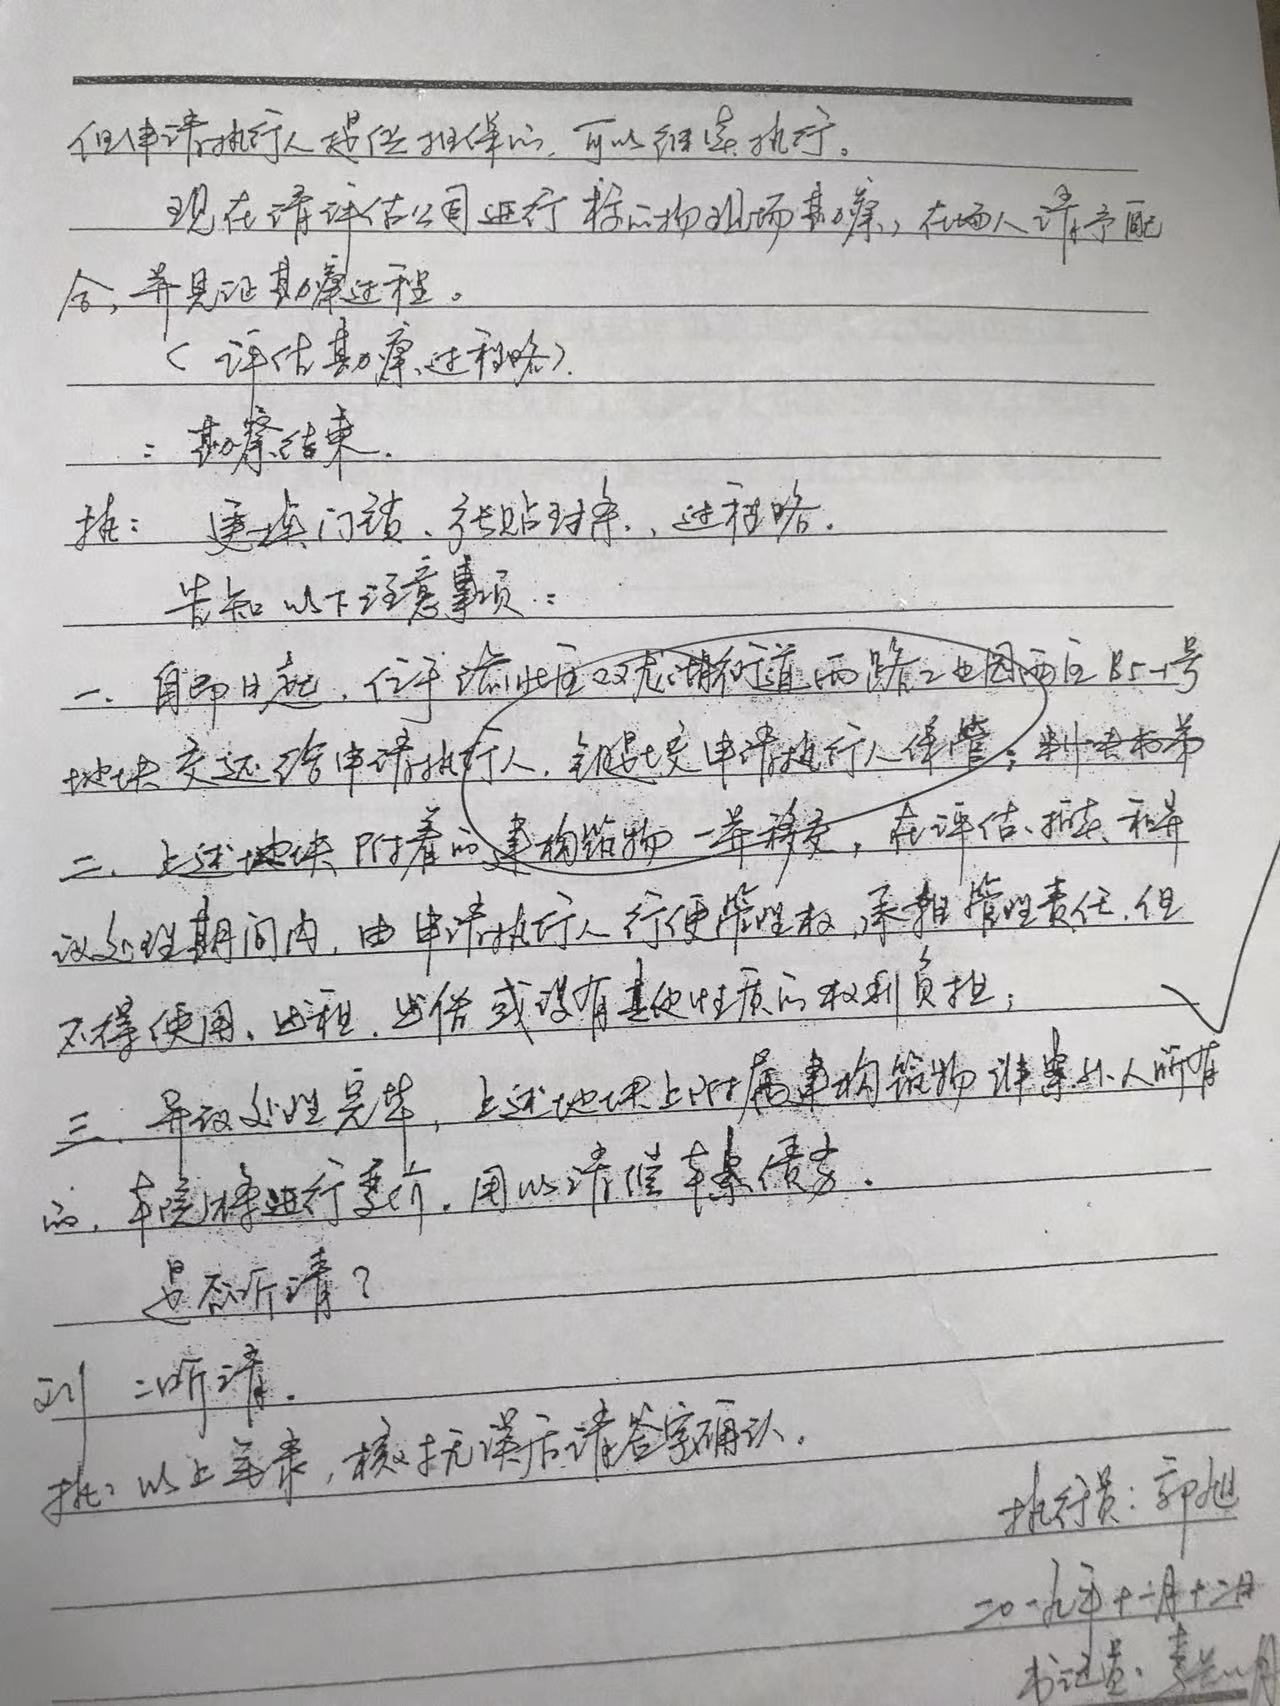 但申请执行人提供担保的,可以继续执行。
现在请评估公司进行标的物现场勘察,在场人请予配
合,并见证勘察过程。
(评估勘察过程略).
:勘察结束.
执: 更换门锁、张贴封条.,过程略.
告知以下注意事项:
一.自即日起,位于渝北区双龙湖街道两路工业园西区B5-1号
地块交还给申请执行人.钥匙交申请执行人保管;
二.上述地块附着的建构筑物一并移交,在评估、拍卖和异
议处理期间内,由申请执行人行使管理权,承担管理责任.但
不得使用、出租、出借或设有其他性质的权利负担;
三.异议处理完毕,上述地块上附属建构筑物非案外人所有
的.本院将进行变价.用以清偿本案债务.
是否听清?
刘 :听清.
执:以上笔录,核对无误后请签字确认.
执行员:郭旭
二〇一九年十一月十二日
书记员: